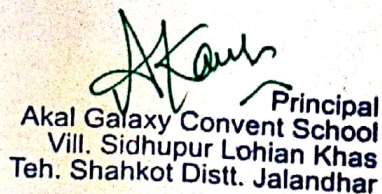 AKaur
Principal
Akal Galaxy Convent School
Vill. Sidhupur Lohian Khas
Teh. Shahkot Distt. Jalandhar